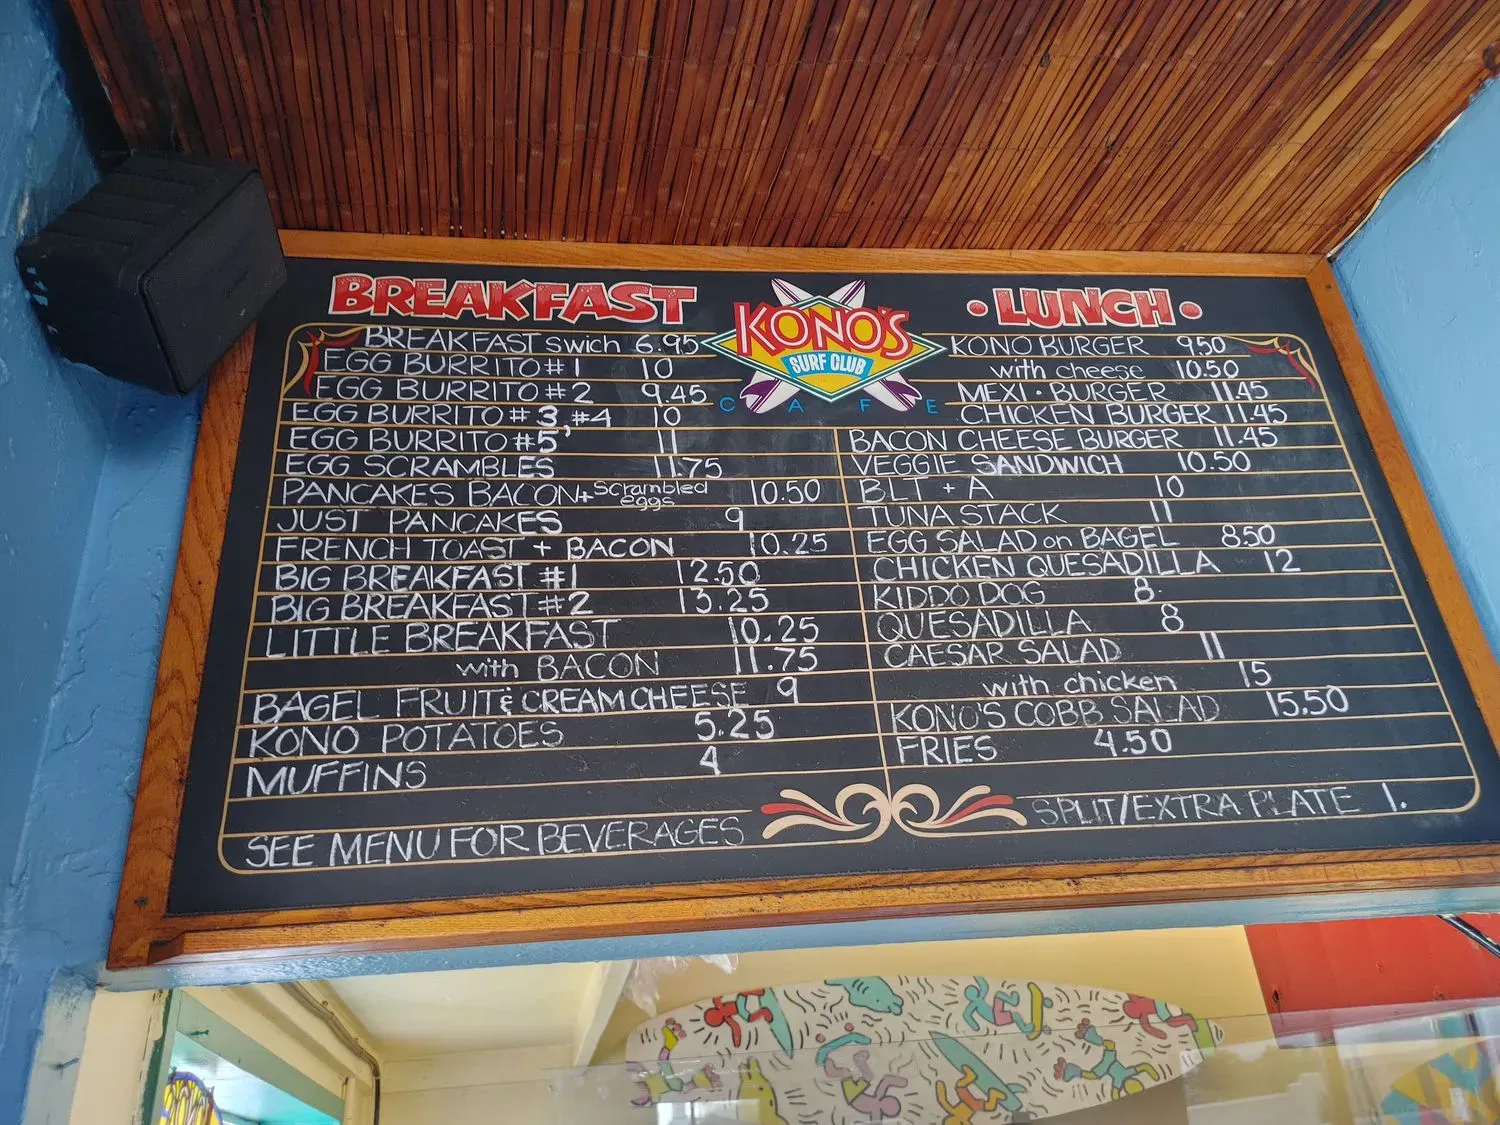 BREAKFAST
BREAKFAST swich 6.95
EGG BURRITO #1 10
EGG BURRITO #2 9.45
EGG BURRITO #3, #4 10
EGG BURRITO #5 11
EGG SCRAMBLES 11.75
PANCAKES BACON + scrambled eggs 10.50
JUST PANCAKES 9
FRENCH TOAST + BACON 10.25
BIG BREAKFAST #1 12.50
BIG BREAKFAST #2 13.25
LITTLE BREAKFAST 10.25
with BACON 11.75
BAGEL FRUIT & CREAM CHEESE 9
KONO POTATOES 5.25
MUFFINS 4
SEE MENU FOR BEVERAGES
KONO'S
SURF CLUB
CAFE
• LUNCH •
KONO BURGER 9.50
with cheese 10.50
MEXI • BURGER 11.45
CHICKEN BURGER 11.45
BACON CHEESE BURGER 11.45
VEGGIE SANDWICH 10.50
BLT + A 10
TUNA STACK 11
EGG SALAD on BAGEL 8.50
CHICKEN QUESADILLA 12
KIDDO DOG 8.
QUESADILLA 8
CAESAR SALAD 11
with chicken 15
KONO'S COBB SALAD 15.50
FRIES 4.50
SPLIT/EXTRA PLATE 1.